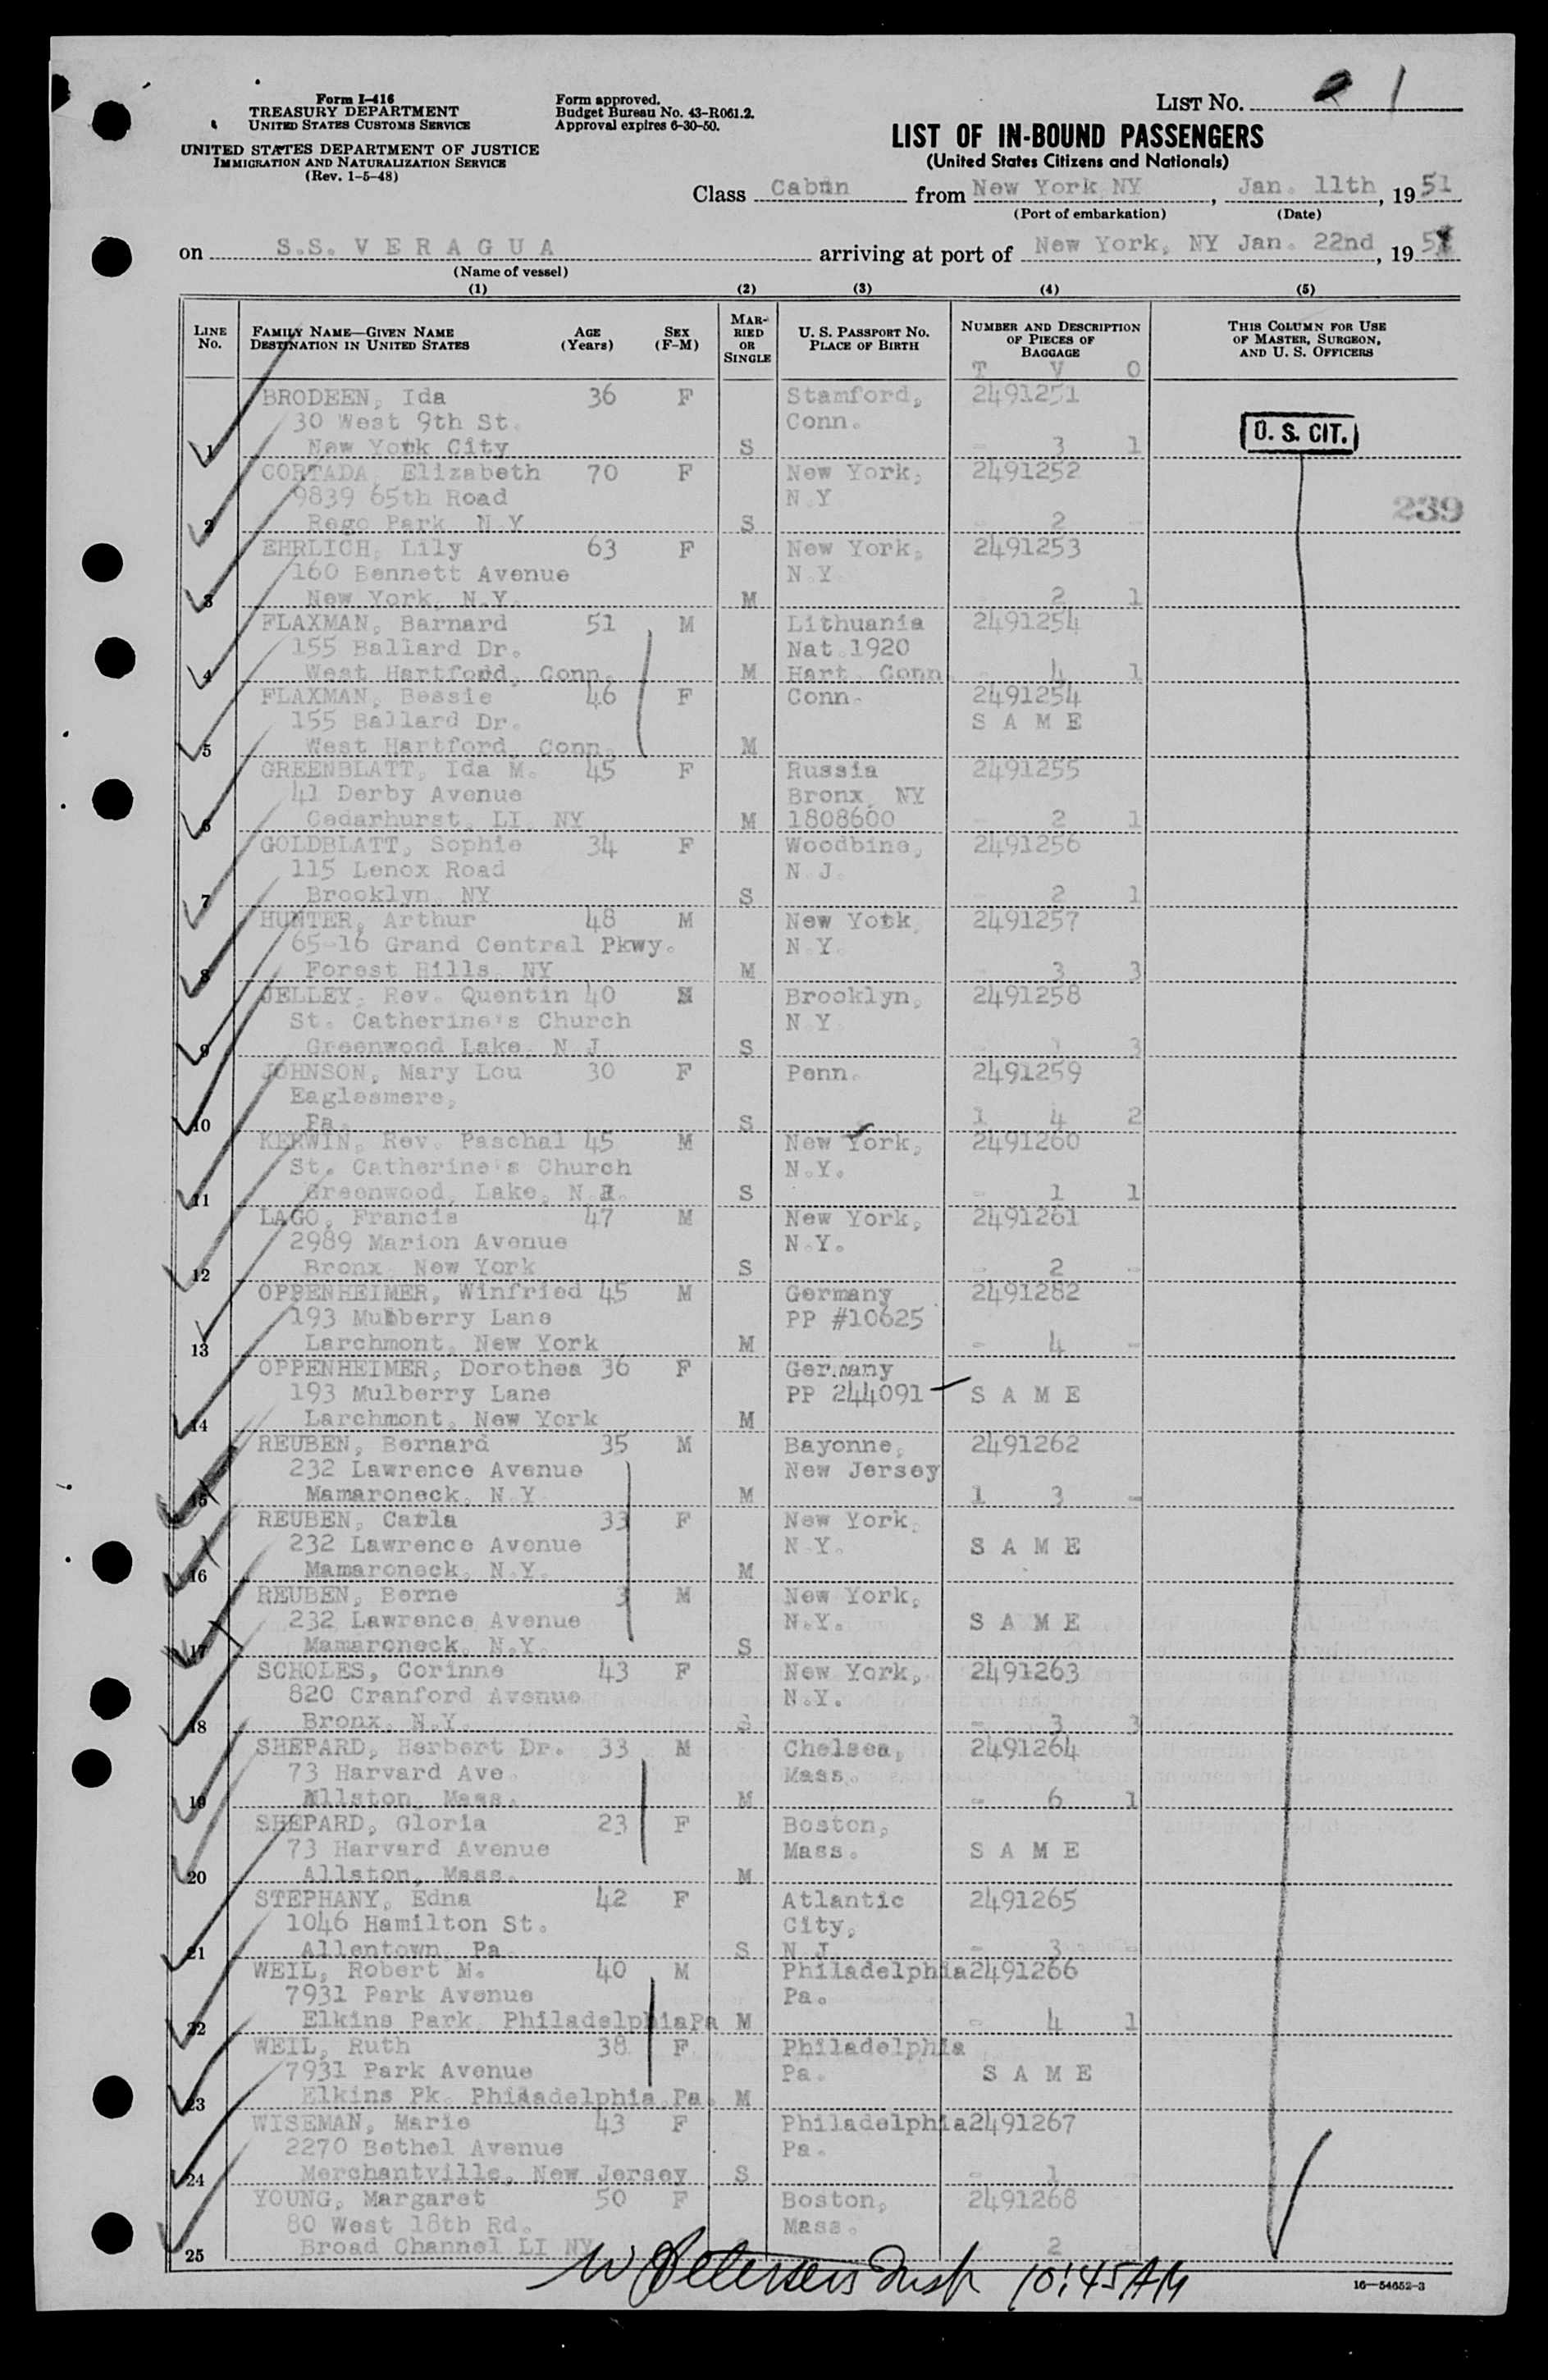 Form I-416
TREASURY DEPARTMENT
UNITED STATES CUSTOMS SERVICE
UNITED STATES DEPARTMENT OF JUSTICE
IMMIGRATION AND NATURALIZATION SERVICE
(Rev. 1-5-48)
Form approved.
Budget Bureau No. 43-R061.2.
Approval expires 6-30-50.
LIST NO. 1
LIST OF IN-BOUND PASSENGERS
(United States Citizens and Nationals)
Class Cabin from New York NY, Jan. 11th, 1951
(Port of embarkation) (Date)
on S.S. VERAGUA arriving at port of New York, NY Jan. 22nd, 1951
(Name of vessel)
(1) (2) (3) (4) (5)
LINE NO. FAMILY NAME—GIVEN NAME DESTINATION IN UNITED STATES AGE (Years) SEX (F-M) MARRIED OR SINGLE U. S. PASSPORT NO. PLACE OF BIRTH NUMBER AND DESCRIPTION OF PIECES OF BAGGAGE THIS COLUMN FOR USE OF MASTER, SURGEON, AND U. S. OFFICERS
T V O
BRODEEN, Ida 36 F Stamford, 2491251
30 West 9th St. Conn.
1 New York City S - 3 1 U. S. CIT.
CORTADA, Elizabeth 70 F New York, 2491252
9839 65th Road N.Y 239
2 Rego Park N.Y S - 2 -
EHRLICH, Lily 63 F New York, 2491253
160 Bennett Avenue N.Y.
3 New York, N.Y. M 2 1
FLAXMAN, Barnard 51 M Lithuania 2491254
155 Ballard Dr. Nat.1920
4 West Hartford, Conn. M Hart. Conn. - 4 1
FLAXMAN, Bessie 46 F Conn. 2491254
155 Ballard Dr. S A M E
5 West Hartford, Conn. M
GREENBLATT, Ida M. 45 F Russia 2491255
41 Derby Avenue Bronx, NY
6 Cedarhurst, LI, NY M 1808600 - 2 1
GOLDBLATT, Sophie 34 F Woodbine, 2491256
115 Lenox Road N.J.
7 Brooklyn, NY S - 2 1
HUNTER, Arthur 48 M New York, 2491257
65-16 Grand Central Pkwy. N.Y.
8 Forest Hills, NY M - 3 3
JELLEY, Rev. Quentin 40 M Brooklyn, 2491258
St. Catherine's Church N.Y.
9 Greenwood Lake, N J S - 1 3
JOHNSON, Mary Lou 30 F Penn. 2491259
Eaglesmere,
10 Pa. S 1 4 2
KERWIN, Rev. Paschal 45 M New York, 2491260
St. Catherine's Church N.Y.
11 Greenwood, Lake, N.J. S - 1 1
LAGO, Francis 47 M New York, 2491261
2989 Marion Avenue N.Y.
12 Bronx, New York S - 2 -
OPPENHEIMER, Winfried 45 M Germany 2491282
193 Mulberry Lane PP #10625
13 Larchmont, New York M - 4 -
OPPENHEIMER, Dorothea 36 F Germany
193 Mulberry Lane PP 244091 S A M E
14 Larchmont, New York M
REUBEN, Bernard 35 M Bayonne, 2491262
232 Lawrence Avenue New Jersey
15 Mamaroneck, N.Y. M 1 3 -
REUBEN, Carla 33 F New York,
232 Lawrence Avenue N.Y. S A M E
16 Mamaroneck, N.Y. M
REUBEN, Berne 3 M New York,
232 Lawrence Avenue N.Y. S A M E
17 Mamaroneck, N.Y. S
SCHOLES, Corinne 43 F New York, 2491263
820 Cranford Avenue N.Y.
18 Bronx, N.Y. S - 3 3
SHEPARD, Herbert Dr. 33 M Chelsea, 2491264
73 Harvard Ave. Mass.
19 Allston, Mass. M - 6 1
SHEPARD, Gloria 23 F Boston,
73 Harvard Avenue Mass. S A M E
20 Allston, Mass. M
STEPHANY, Edna 42 F Atlantic 2491265
1046 Hamilton St. City,
21 Allentown, Pa S N J - 3 -
WEIL, Robert M. 40 M Philadelphia 2491266
7931 Park Avenue Pa.
22 Elkins Park, PhiladelphiaPa M - 4 1
WEIL, Ruth 38 F Philadelphia
7931 Park Avenue Pa. S A M E
23 Elkins Pk. Philadelphia.Pa. M
WISEMAN, Marie 43 F Philadelphia 2491267
2270 Bethel Avenue Pa.
24 Merchantville, New Jersey S - 1
YOUNG, Margaret 50 F Boston, 2491268
80 West 18th Rd. Mass.
25 Broad Channel LI NY 2
W Petersen Insp 10:45AM
16—54652-3